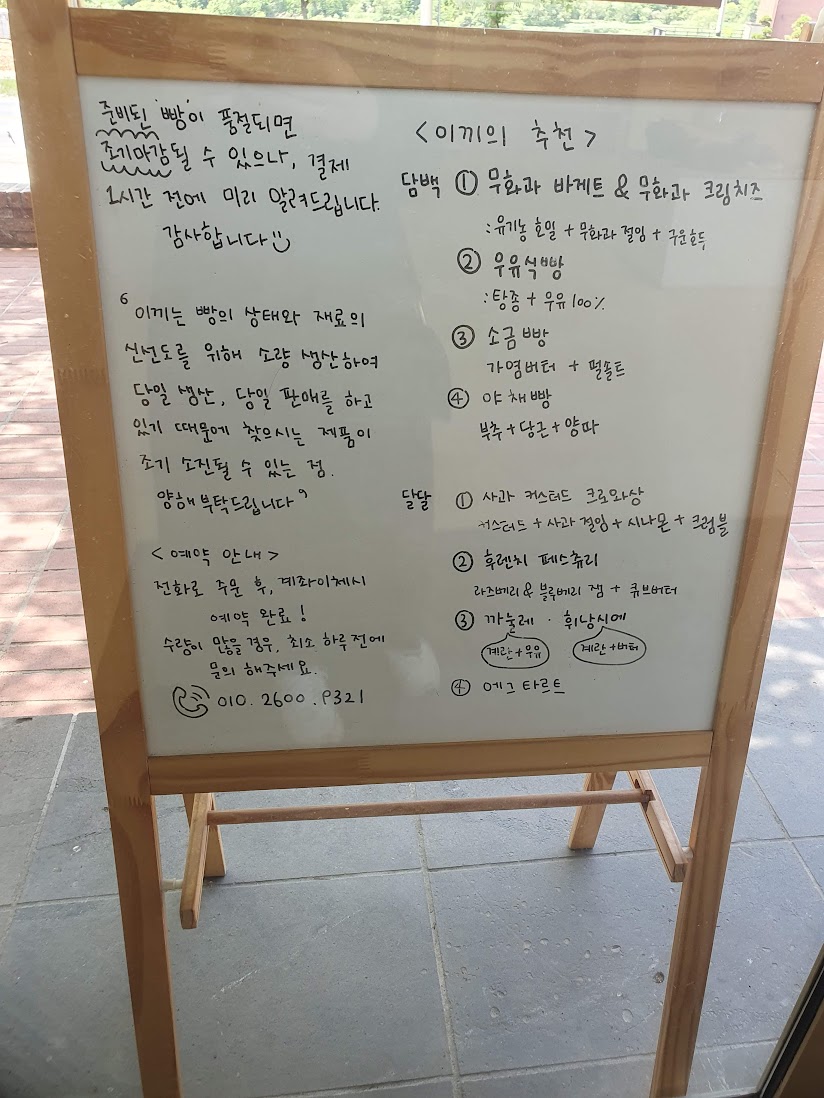 준비된 '빵'이 품절되면
조기마감될 수 있으나, 결제
1시간 전에 미리 알려드립니다.
감사합니다
이끼는 빵의 상태와 재료의
신선도를 위해 소량 생산하여
당일 생산, 당일 판매를 하고
있기 때문에 찾으시는 제품이
조기 소진될 수 있는 점.
양해 부탁드립니다
<예약 안내>
전화로 주문 후, 계좌이체시
예약 완료!
수량이 많을 경우, 최소 하루 전에
문의 해주세요.
010. 2600. 9321
<이끼의 추천>
담백 ① 무화과 바게트 & 무화과 크림치즈
: 유기농 호밀 + 무화과 절임 + 구운호두
② 우유식빵
: 탕종 + 우유 100%
③ 소금빵
가염버터 + 펄솔트
④ 야채빵
부추 + 당근 + 양파
달달 ① 사과 커스터드 크로와상
커스터드 + 사과 절임 + 시나몬 + 크럼블
② 후렌치 페스츄리
라즈베리 & 블루베리 잼 + 큐브버터
③ 까눌레 · 휘낭시에
계란 + 우유 계란 + 버터
④ 에그 타르트